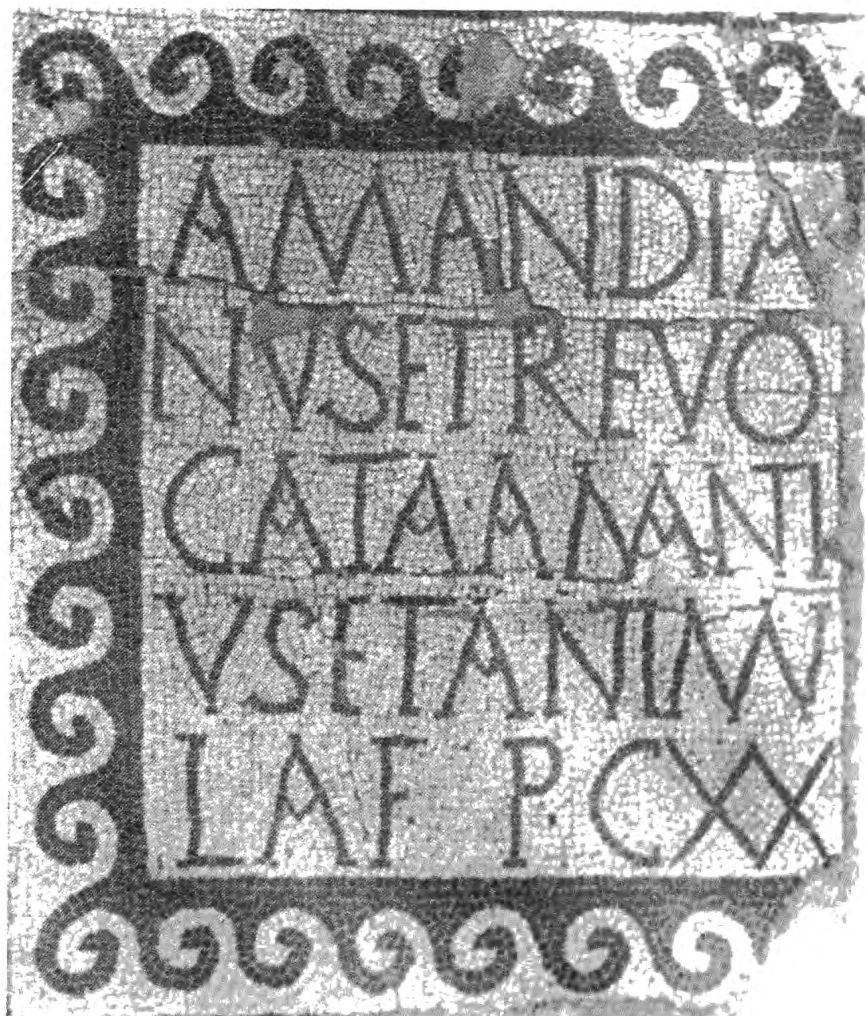 AMANDIA
NVSETREVO
CATAADANTI
VSETANIMV
LAF. P. CXX